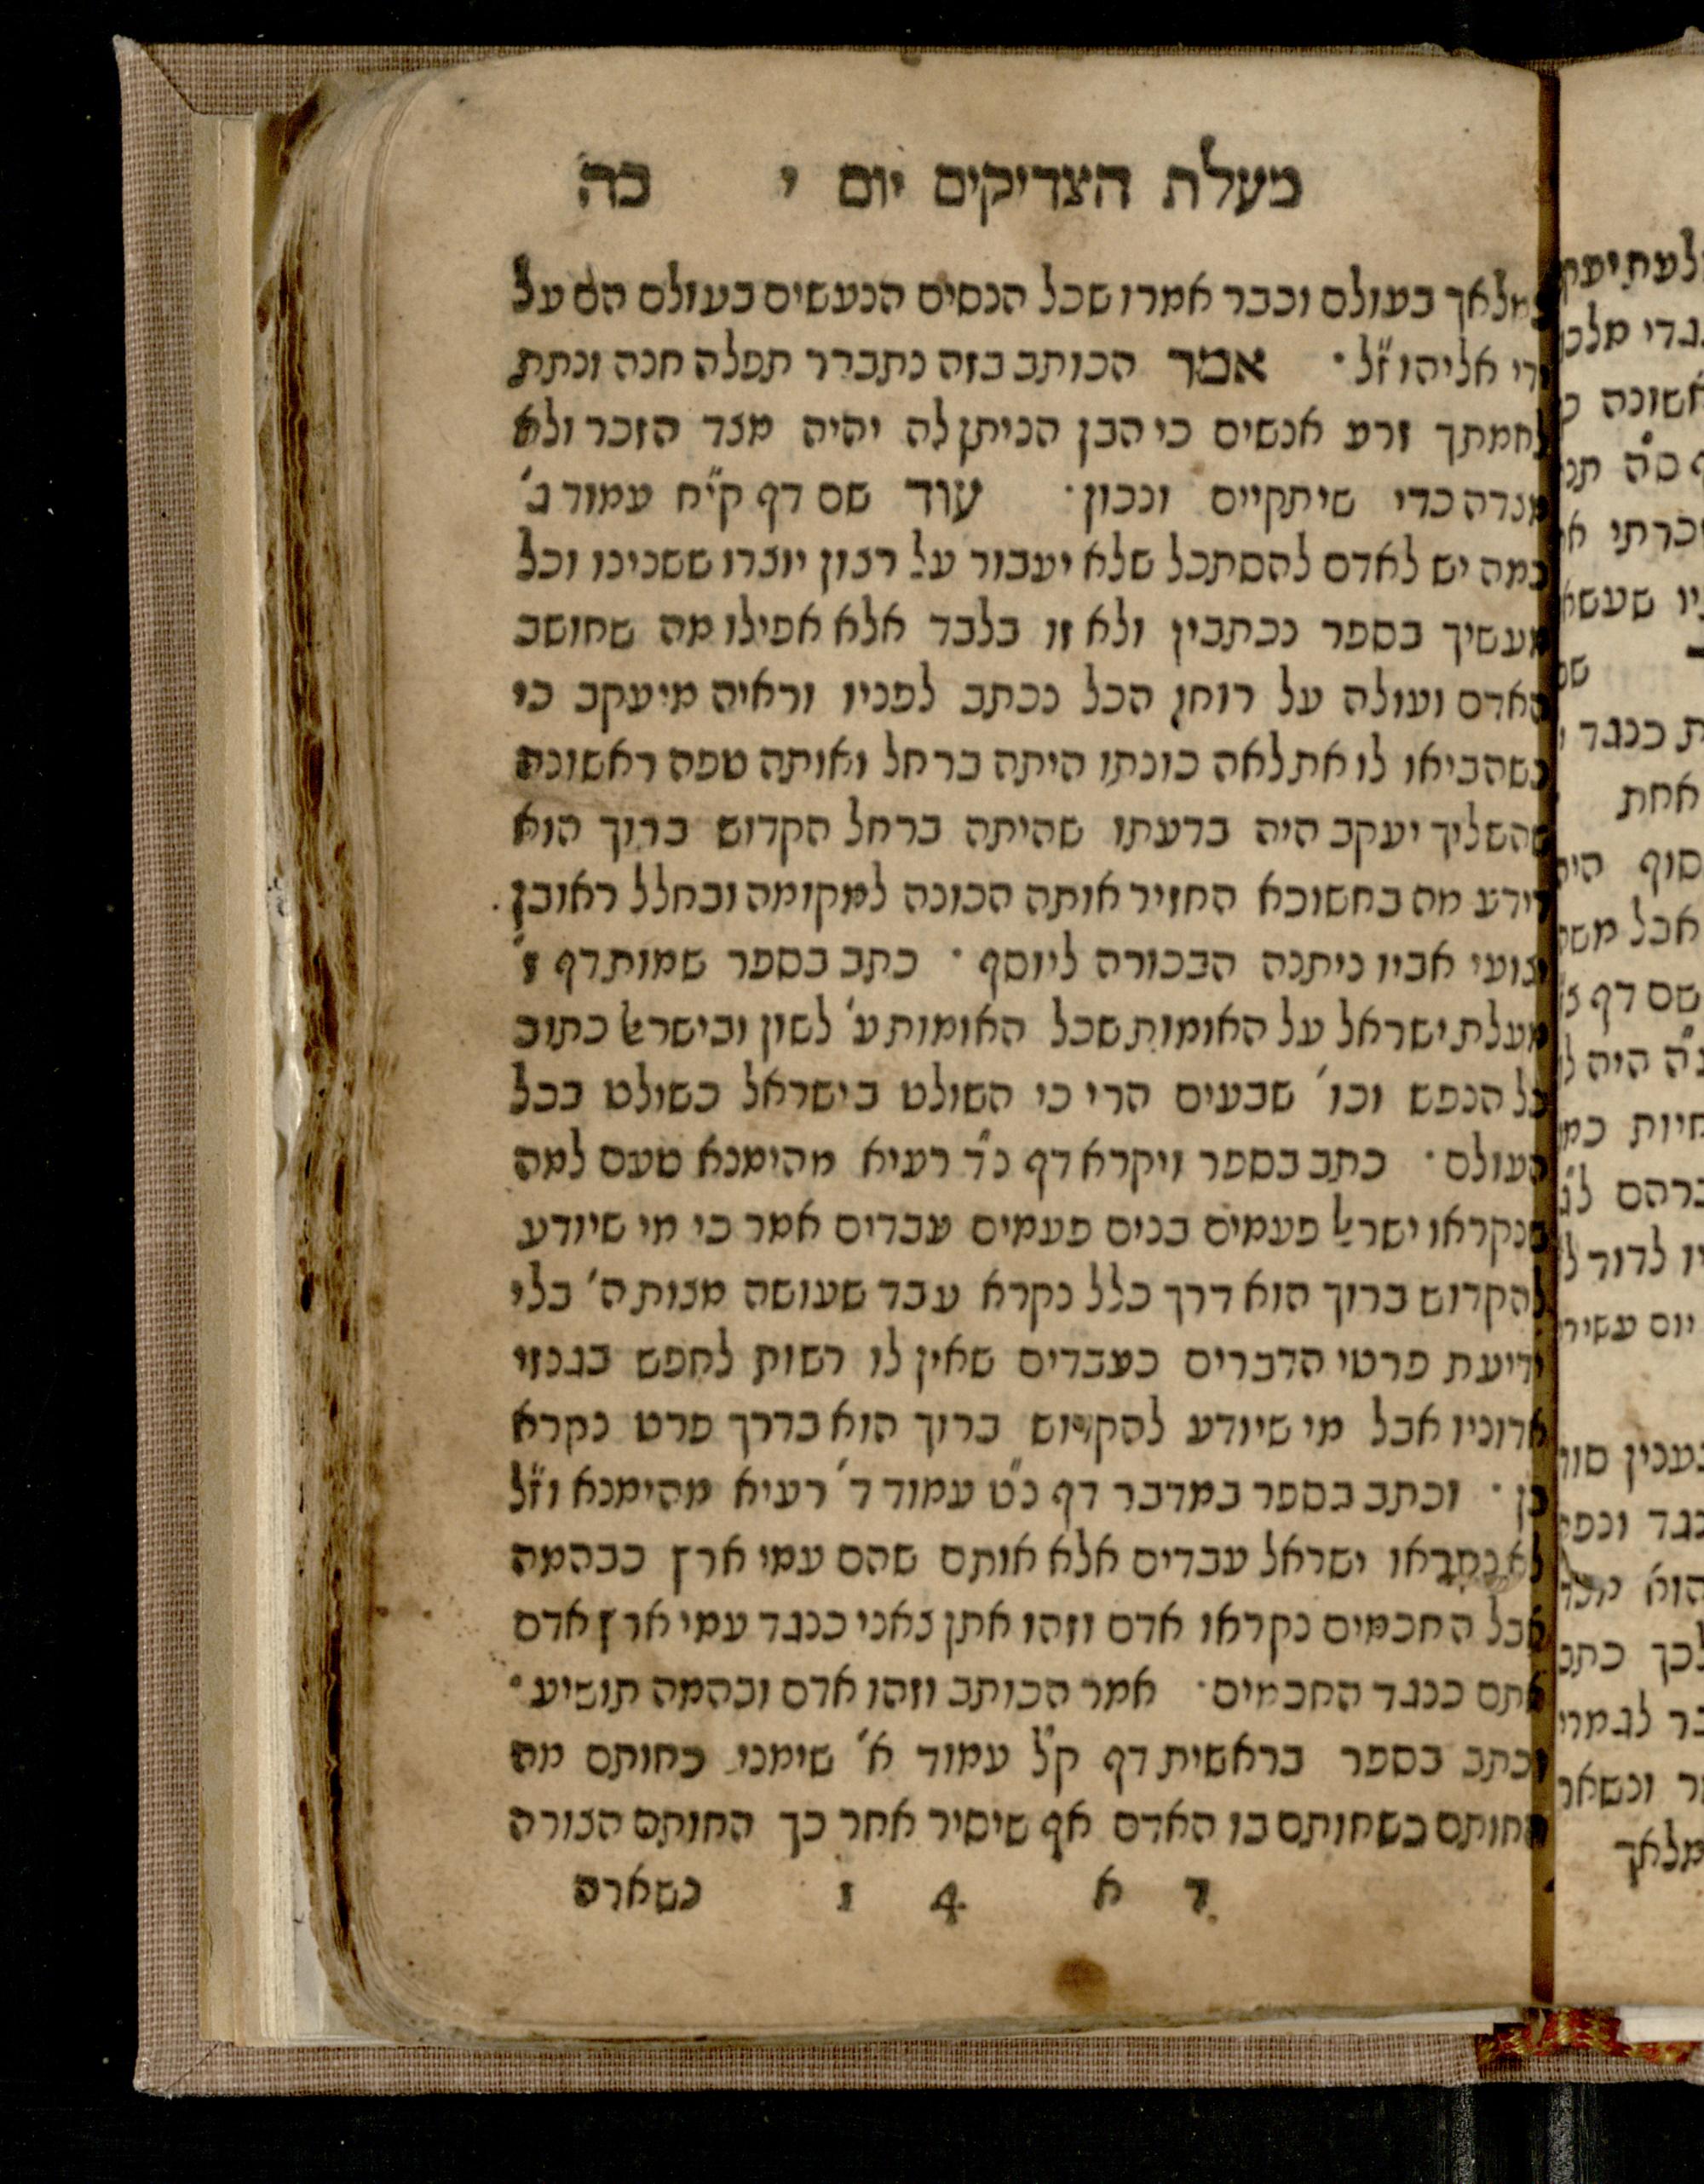 מעלת הצדיקים יום י כה
מלאך בעולם וכבר אמרו שכל הנסים הנעשים בעולם הם על
ידי אליהו ז״ל · אמר הכותב בזה נתברר תפלה חנה ונתת
לאמתך זרע אנשים כי הבן הניתן לה יהיה מצד הזכר ולא
מצדה כדי שיתקיים ונכון · עוד שם דף קי״ח עמוד ג׳
כמה יש לאדם להסתכל שלא יעבור על רצון יוצרו ששכינו וכל
מעשיך בספר נכתבין ולא זו בלבד אלא אפילו מה שחושב
האדם ועולה על רוחו הכל נכתב לפניו וראיה מיעקב כי
כשהביאו לו את לאה כונתו היתה ברחל ואותה טפה ראשונה
שהשליך יעקב היה בדעתו שהיתה ברחל הקדוש ברוך הוא
דידע מה בחשוכא החזיר אותה הכונה למקומה ובחלל ראובן
יצועי אביו ניתנה הבכורה ליוסף · כתב בספר שמות דף ז׳
מעלת ישראל על האומות שכל האומות ע׳ לשון ובישראל כתוב
כל הנפש וכו׳ שבעים הרי כי השולט בישראל כשולט בכל
העולם · כתב בספר ויקרא דף כ״ד רעיא מהימנא טעם למה
שנקראו ישראל פעמים בנים פעמים עבדים אמר כי מי שיודע
להקדוש ברוך הוא דרך כלל נקרא עבד שעושה מצות ה׳ בלי
ידיעת פרטי הדברים כעבדים שאין לו רשות לחפש בגנזי
אדוניו אבל מי שיודע להקדוש ברוך הוא בדרך פרט נקרא
בן · וכתב בספר במדבר דף כ״ט עמוד ד׳ רעיא מהימנא וז״ל
לא נקראו ישראל עבדים אלא אותם שהם עמי ארץ כבהמה
אבל החכמים נקראו אדם וזהו אתן צאני כנגד עמי ארץ אדם
אתם כנגד החכמים · אמר הכותב וזהו אדם ובהמה תושיע ·
וכתב בספר בראשית דף ק״ל עמוד א׳ שימני כחותם מה
החותם כשחותם בו האדם אף שיסיר אחר כך החותם הצורה
ד א 4 1 נשארה